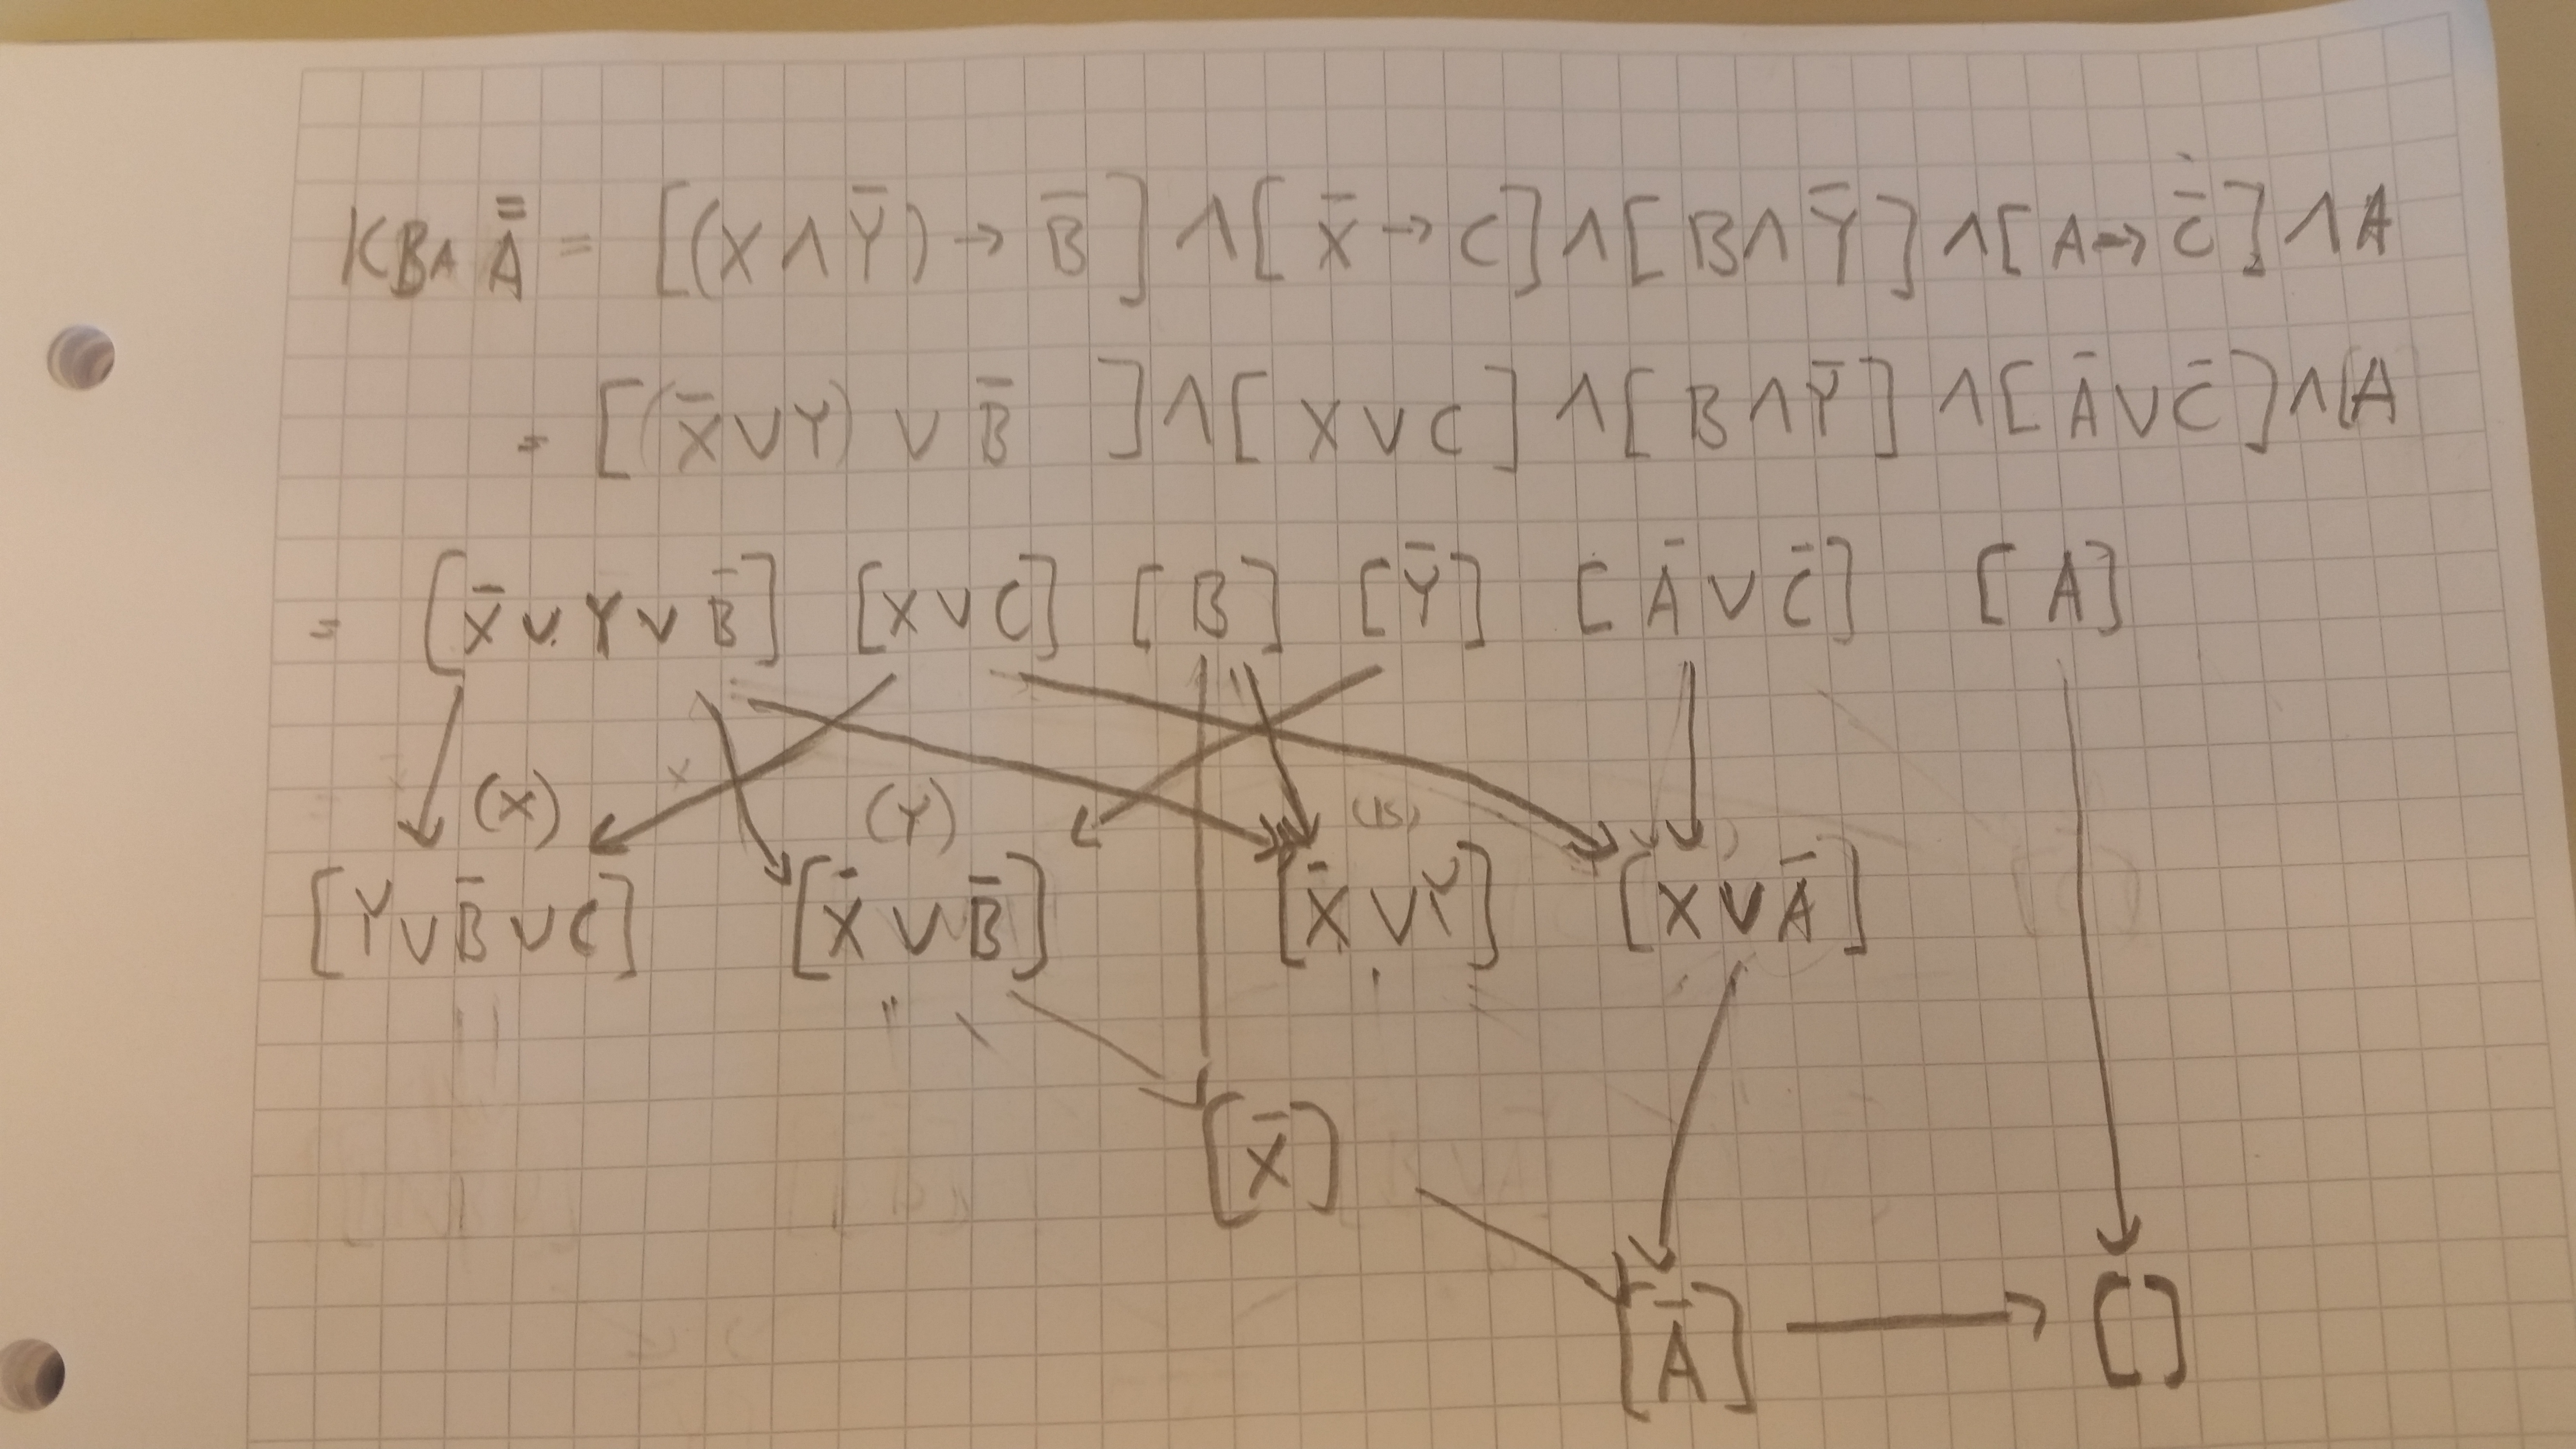 KB ∧ A̿ = [(X ∧ Y̅) → B̅] ∧ [X̅ → C] ∧ [B ∧ Y̅] ∧ [A → C̅] ∧ A
= [(X̅ ∨ Y) ∨ B̅] ∧ [X ∨ C] ∧ [B ∧ Y̅] ∧ [A̅ ∨ C̅] ∧ [A]
= [X̅ ∨ Y ∨ B̅] [X ∨ C] [B] [Y̅] [A̅ ∨ C̅] [A]
(X) (Y) (B)
[Y ∨ B̅ ∨ C] [X̅ ∨ B̅] [X̅ ∨ Y] [X ∨ A̅]
[X̅]
[A̅] []